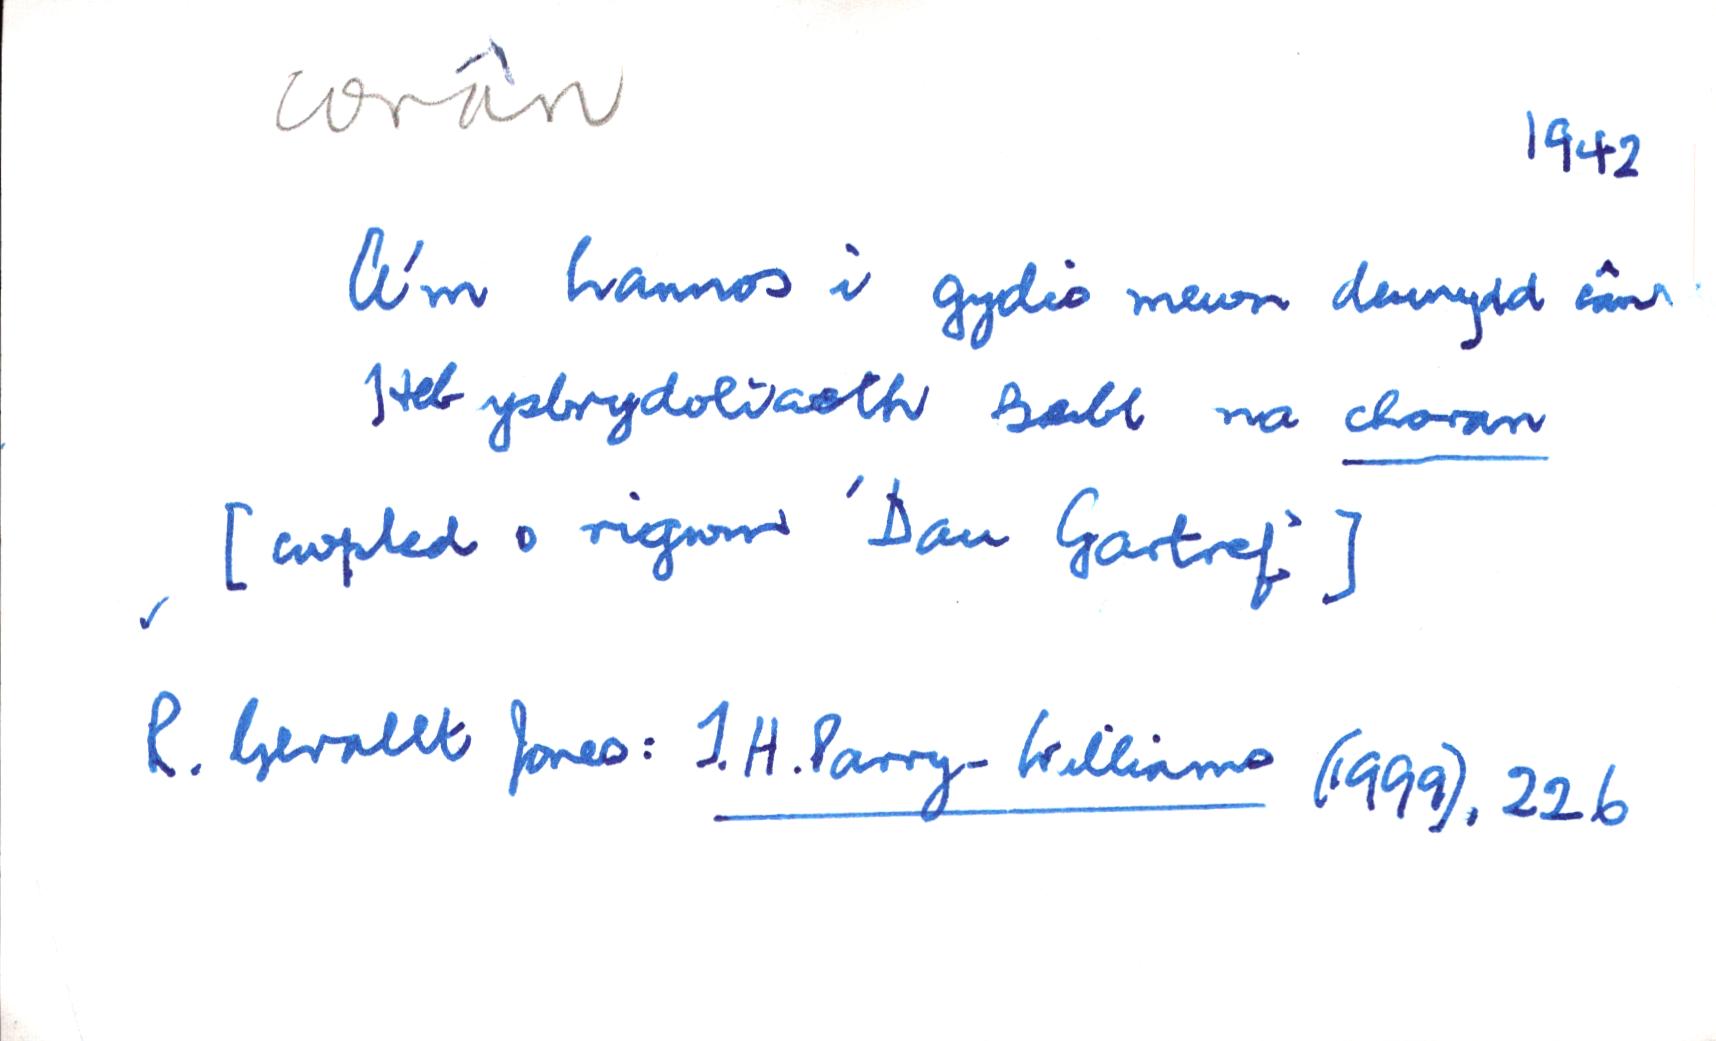 corân
1942
A'm hannos i gydio mewn deunydd cân
Heb ysbrydoliaeth Beibl na choran
[cwpled o rigwm 'Dau Gartref']
✓
R. Gerallt Jones: T.H. Parry-Williams (1999), 226